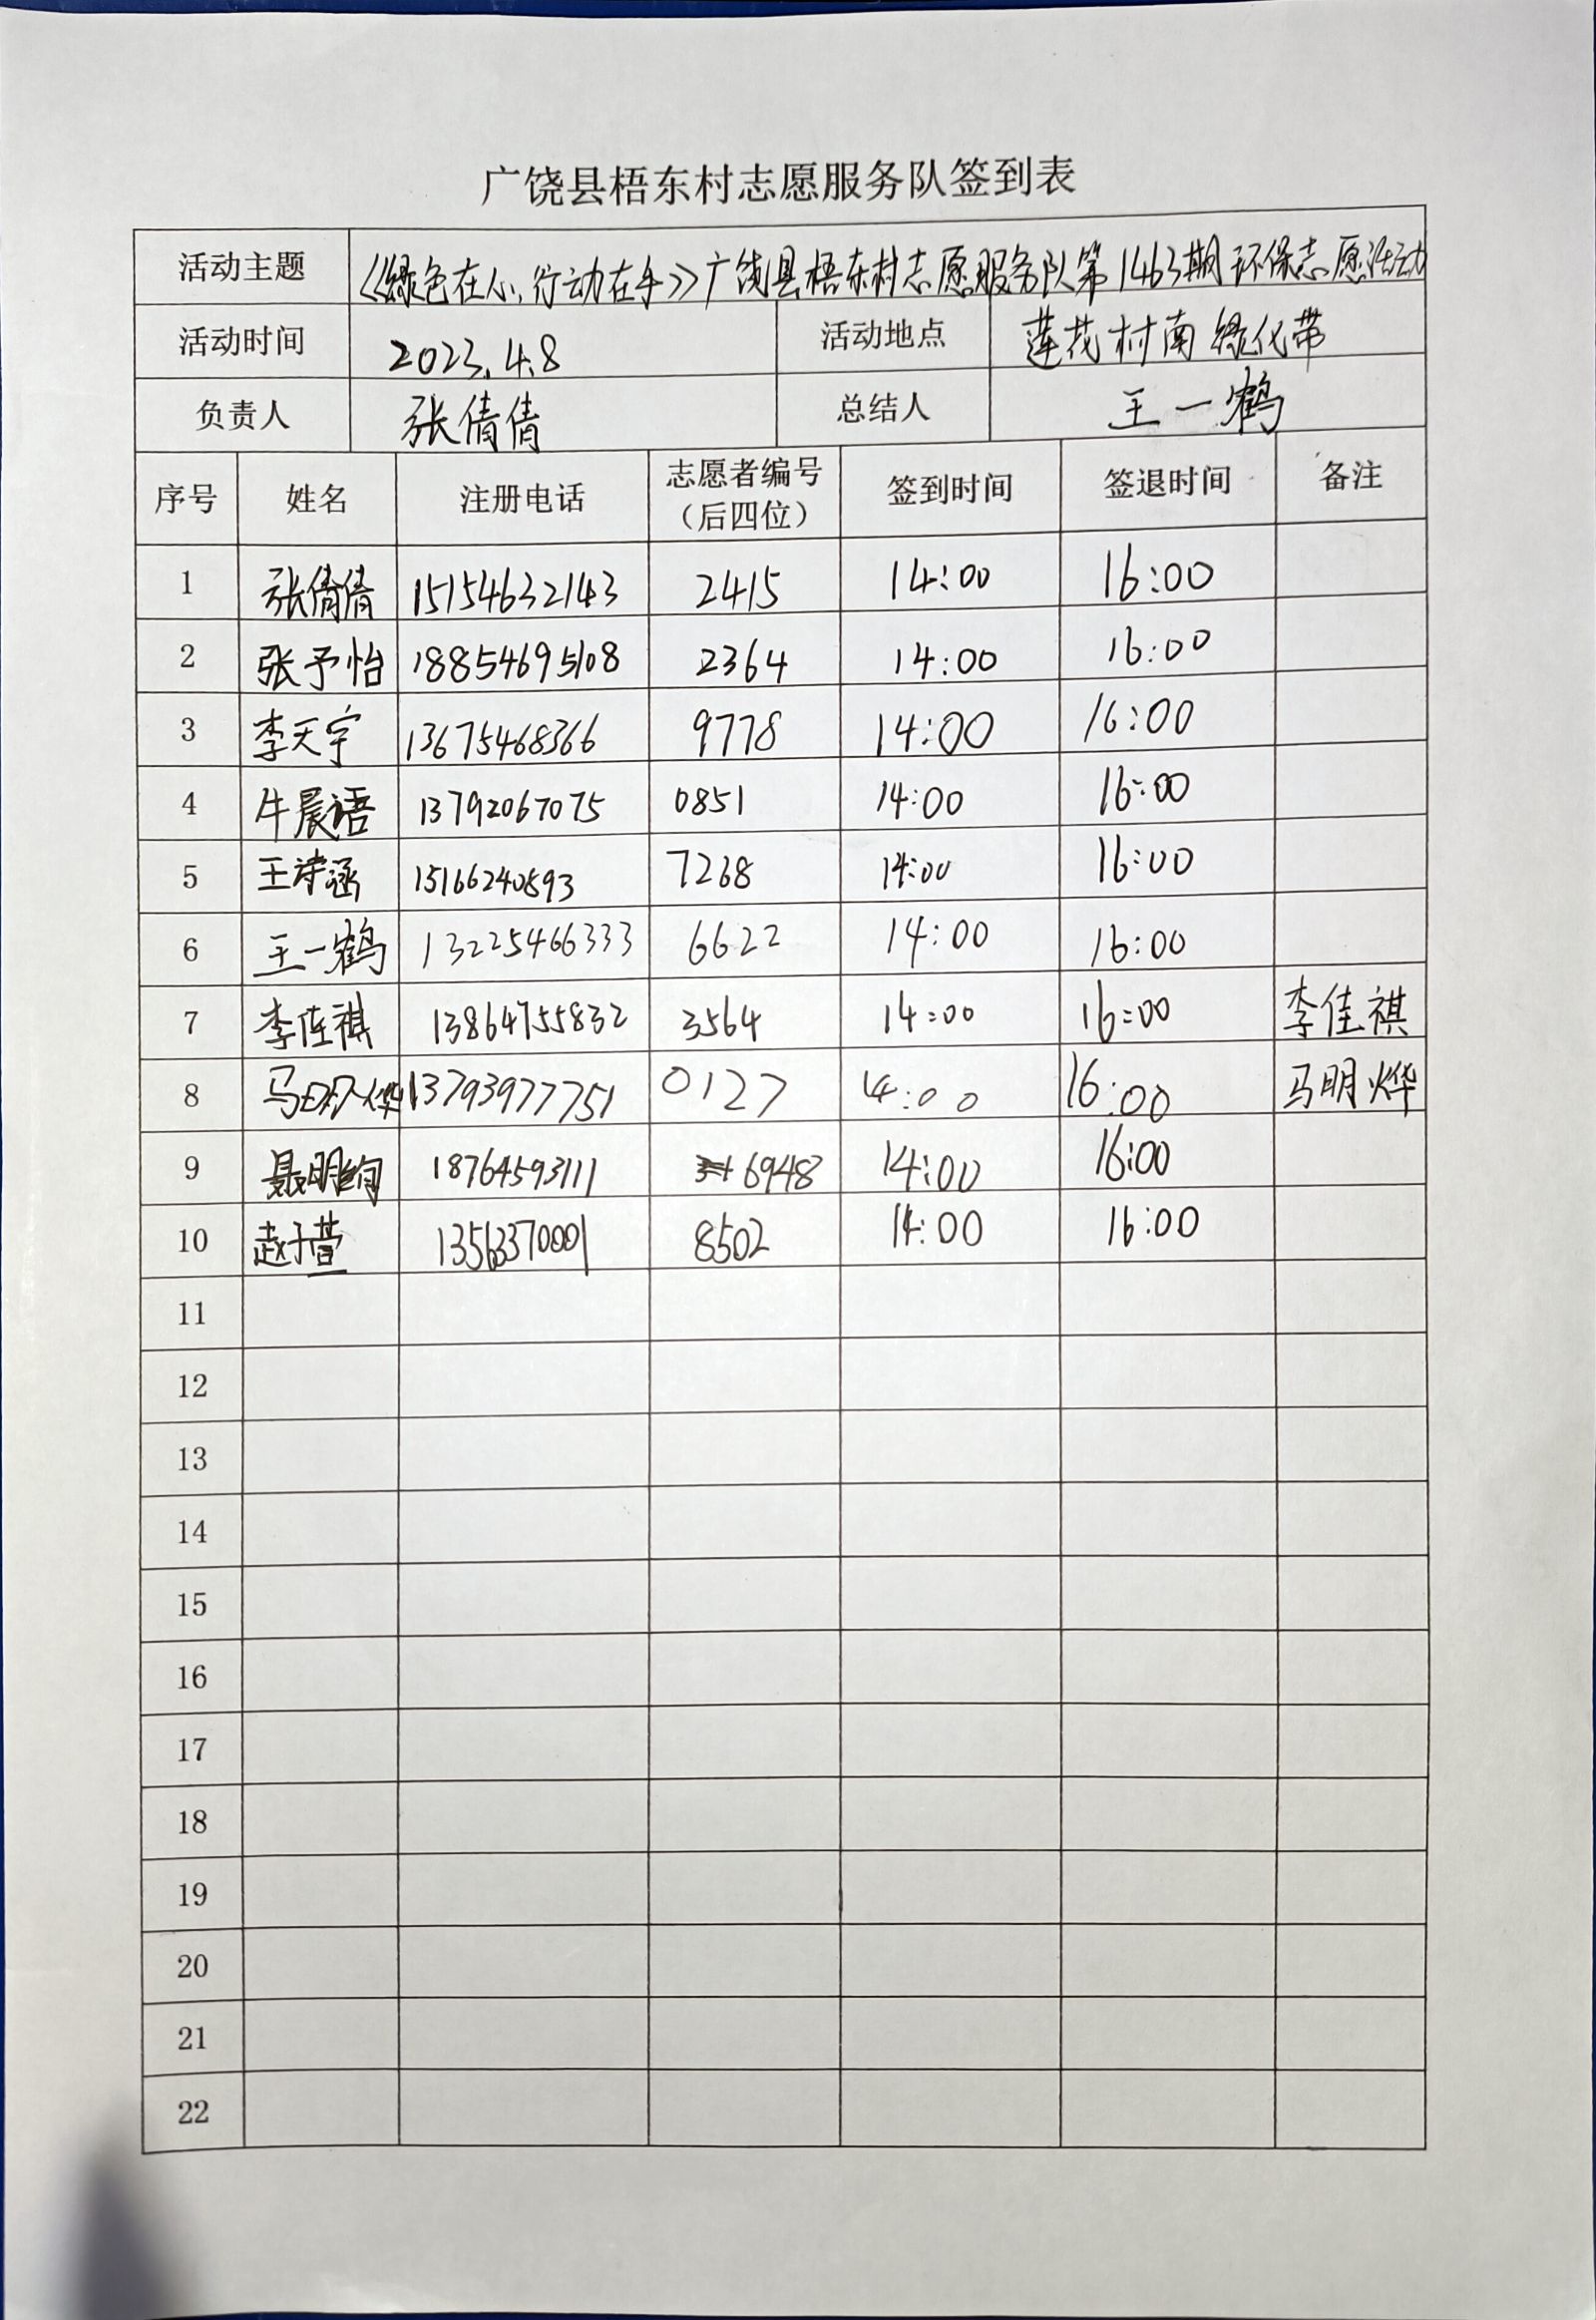 广饶县梧东村志愿服务队签到表
活动主题 《绿色在心,行动在手》广饶县梧东村志愿服务队第1463期环保志愿活动
活动时间 2023.4.8 活动地点 莲花村南绿化带
负责人 张倩倩 总结人 王一鹤
序号 姓名 注册电话 志愿者编号（后四位） 签到时间 签退时间 备注
1 张倩倩 15154632143 2415 14:00 16:00
2 张予怡 18854695108 2364 14:00 16:00
3 李天宇 13675468366 9778 14:00 16:00
4 牛晨语 13792067075 0851 14:00 16:00
5 王诗涵 15166240893 7268 14:00 16:00
6 王一鹤 13225466333 6622 14:00 16:00
7 李佳祺 13864755832 3564 14:00 16:00 李佳祺
8 马明烨 13793977751 0127 14:00 16:00 马明烨
9 聂明绚 18764593111 6948 14:00 16:00
10 赵子萱 13563370001 8502 14:00 16:00
11
12
13
14
15
16
17
18
19
20
21
22